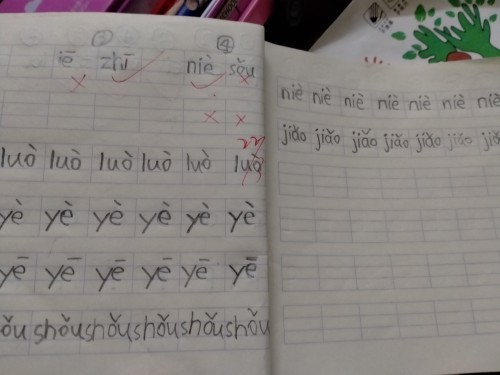 ③ ④
iē zhī niè sěu
luò luò luò luò luò luò
yè yè yè yè yè yè
yē yē yē yē yē yē
ǒu shǒu shǒu shǒu shǒu shǒu
niè niè niè niè niè niè niè
jiǎo jiǎo jiǎo jiǎo jiǎo jiǎo jiǎo